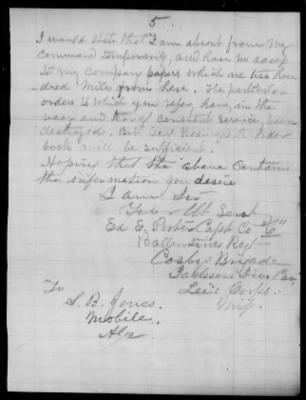 5
I would state that I am absent from my
command temporarily, and have no access
to my company papers which are two hun
dred miles from here. The particular
orders to which you refer, have, in the
wear and tear of constant service, been
destroyed. But Genl order
book will be sufficient.
Hoping that the above contains
the information you desire
I am Sir
Your Obt Servt
Ed E. Porter Capt Co "E"
Ballentines Regt
Cosby's Brigade
Jacksons Divn Cav
Lee's Corps.
Miss.
To
S. B. Jones.
Mobile.
Ala